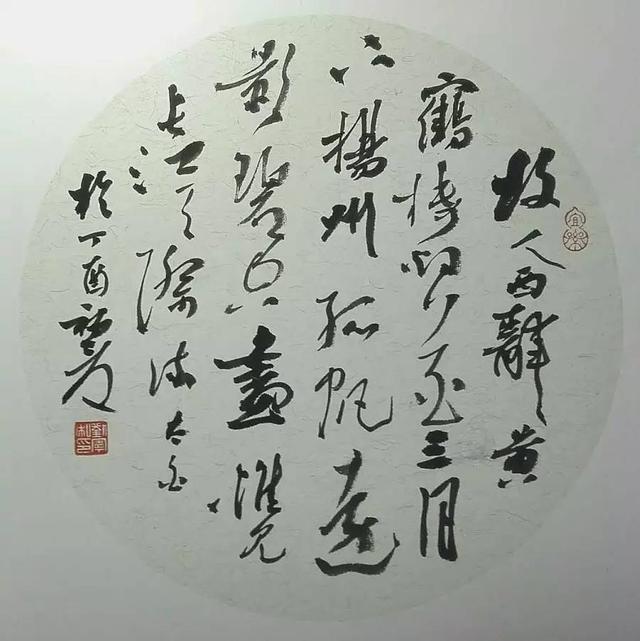 故人西辭黄
鶴樓烟花三月
下揚州孤帆遠
影碧空盡惟見
長江天際流太白
於丁酉初夏